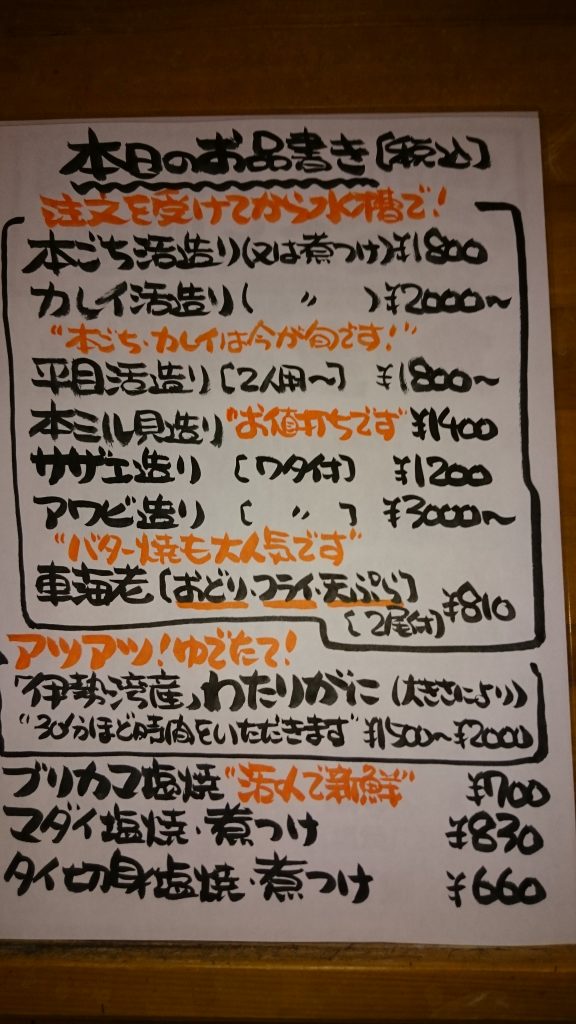 本日のお品書き[税込]
注文を受けてから水槽で!
本ごち活造り(又は煮つけ)¥1800
カレイ活造り( 〃 )¥2000〜
"本ごち・カレイは今が旬です!"
平目活造り[2人用〜] ¥1800〜
本ミル貝造り"お値打ちです" ¥1400
サザエ造り [ワタ付] ¥1200
アワビ造り [ 〃 ] ¥3000〜
"バター焼も大人気です"
車海老[おどり・フライ・天ぷら] ¥810
[2尾付]
アツアツ!ゆでたて!
「伊勢湾産」わたりがに(大きさにより)
"30分ほど時間をいただきます" ¥1500〜¥2000
ブリカマ塩焼"活〆で新鮮" ¥700
マダイ塩焼・煮つけ ¥830
タイ切身塩焼・煮つけ ¥660